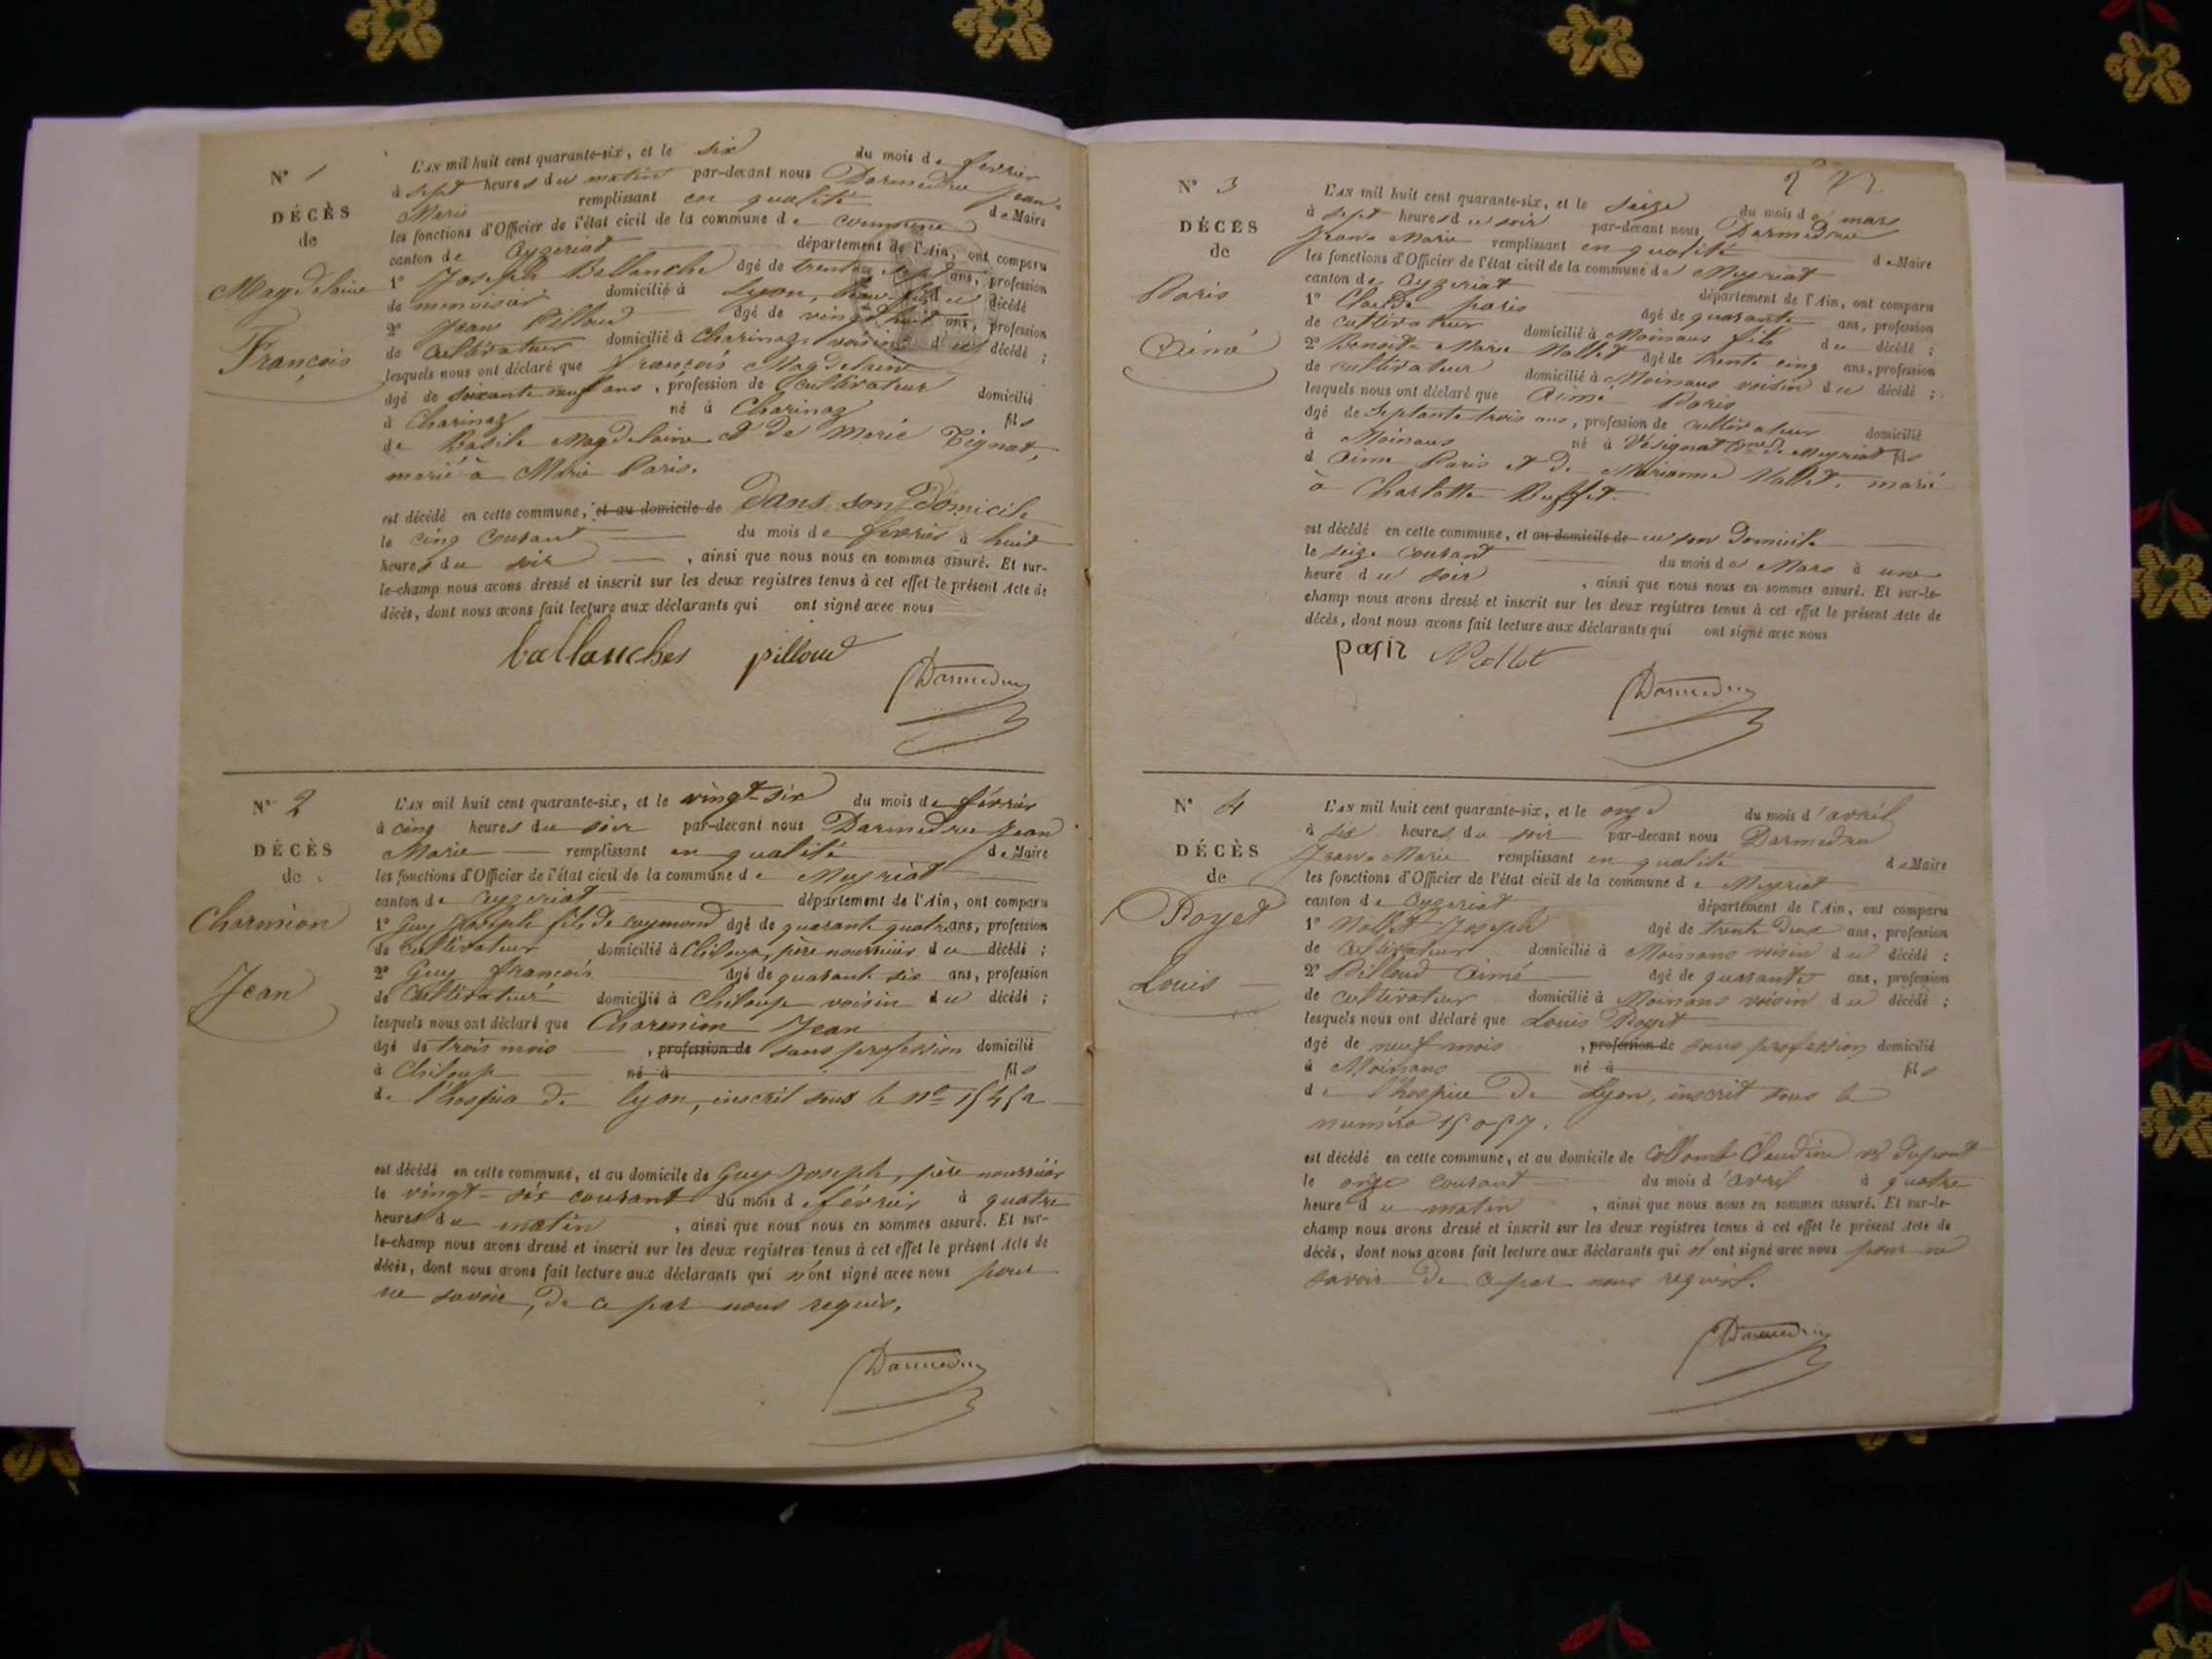 N° 1
DÉCÈS
de
Magdelaine
François
L'AN mil huit cent quarante-six, et le six du mois de février
à sept heures du matin par-devant nous Darmedru Jean-
Marie remplissant en qualité de Maire
les fonctions d'Officier de l'état civil de la commune de commune
canton de Ceyzeriat département de l'Ain, ont comparu
1° Joseph Ballanche âgé de trente sept ans, profession
de menuisier domicilié à Lyon, beau-fils du décédé
2° Jean Pilloud âgé de vingt huit ans, profession
de cultivateur domicilié à Charinaz voisin du décédé ;
lesquels nous ont déclaré que françois Magdelaine
âgé de soixante neuf ans, profession de cultivateur domicilié
à Charinaz né à Charinaz fils
de Basile Magdelaine et de Marie Tignat,
marié à Marie Paris.
est décédé en cette commune, et au domicile de Dans son Domicile
le cinq courant du mois de février à huit
heures du soir , ainsi que nous nous en sommes assuré. Et sur-
le-champ nous avons dressé et inscrit sur les deux registres tenus à cet effet le présent Acte de
décès, dont nous avons fait lecture aux déclarants qui ont signé avec nous
ballanches pilloud
Darmedru
N° 2
DÉCÈS
de
Charmion
Jean
L'AN mil huit cent quarante-six, et le vingt-six du mois de février
à cinq heures du soir par-devant nous Darmedru Jean
Marie remplissant en qualité de Maire
les fonctions d'Officier de l'état civil de la commune de Meyriat
canton de Ceyzeriat département de l'Ain, ont comparu
1° Guy Joseph fils de raymond âgé de quarante quatre ans, profession
de cultivateur domicilié à Chiloup, père nourricier du décédé ;
2° Guy françois âgé de quarante six ans, profession
de Cultivateur domicilié à Chiloup voisin du décédé ;
lesquels nous ont déclaré que Charmion Jean
âgé de trois mois , profession de sans profession domicilié
à Chiloup né à fils
de l'hospice de lyon, inscrit sous le n°
est décédé en cette commune, et au domicile de Guy Joseph, père nourricier
le vingt-six courant du mois de février à quatre
heures du matin , ainsi que nous nous en sommes assuré. Et sur-
le-champ nous avons dressé et inscrit sur les deux registres tenus à cet effet le présent Acte de
décès, dont nous avons fait lecture aux déclarants qui n'ont signé avec nous pour
ne savoir, de ce par nous requis.
Darmedru
N° 3
DÉCÈS
de
Paris
Aimé
L'AN mil huit cent quarante-six, et le seize du mois de mars
à sept heures du soir par-devant nous Darmedru
Jean-Marie remplissant en qualité de Maire
les fonctions d'Officier de l'état civil de la commune de Meyriat
canton de Ceyzeriat département de l'Ain, ont comparu
1° Claude paris âgé de quarante ans, profession
de cultivateur domicilié à Moinans fils du décédé ;
2° Benoit-Marie Nallet âgé de trente cinq ans, profession
de cultivateur domicilié à Moinans voisin du décédé ;
lesquels nous ont déclaré que Aimé Paris
âgé de septante trois ans, profession de cultivateur domicilié
à Moinans né à Vésignat Cne de Meyriat fils
d Aimé Paris et de Marianne Nallet. marié
à Charlotte Buffet.
est décédé en cette commune, et au domicile de en son domicile
le seize courant du mois de Mars à une
heure du soir , ainsi que nous nous en sommes assuré. Et sur-le-
champ nous avons dressé et inscrit sur les deux registres tenus à cet effet le présent Acte de
décès, dont nous avons fait lecture aux déclarants qui ont signé avec nous
paris Nallet
Darmedru
N° 4
DÉCÈS
de
Poyet
Louis
L'AN mil huit cent quarante-six, et le onze du mois d'avril
à six heures du soir par-devant nous Darmedru
Jean-Marie remplissant en qualité de Maire
les fonctions d'Officier de l'état civil de la commune de Meyriat
canton de Ceyzeriat département de l'Ain, ont comparu
1° Nallet Joseph âgé de trente deux ans, profession
de Cultivateur domicilié à Moinans voisin du décédé ;
2° Pilloud Aimé âgé de quarante ans, profession
de cultivateur domicilié à Moinans voisin du décédé ;
lesquels nous ont déclaré que Louis Poyet
âgé de neuf mois , profession de sans profession domicilié
à Moinans né à fils
de l'hospice de Lyon, inscrit sous le
numéro 15057.
est décédé en cette commune, et au domicile de Collomb Claudine ve Dupont
le onze courant du mois d'avril à quatre
heure du matin , ainsi que nous nous en sommes assuré. Et sur-le-
champ nous avons dressé et inscrit sur les deux registres tenus à cet effet le présent Acte de
décès, dont nous avons fait lecture aux déclarants qui n'ont signé avec nous pour ne
savoir de ce par nous requis.
Darmedru